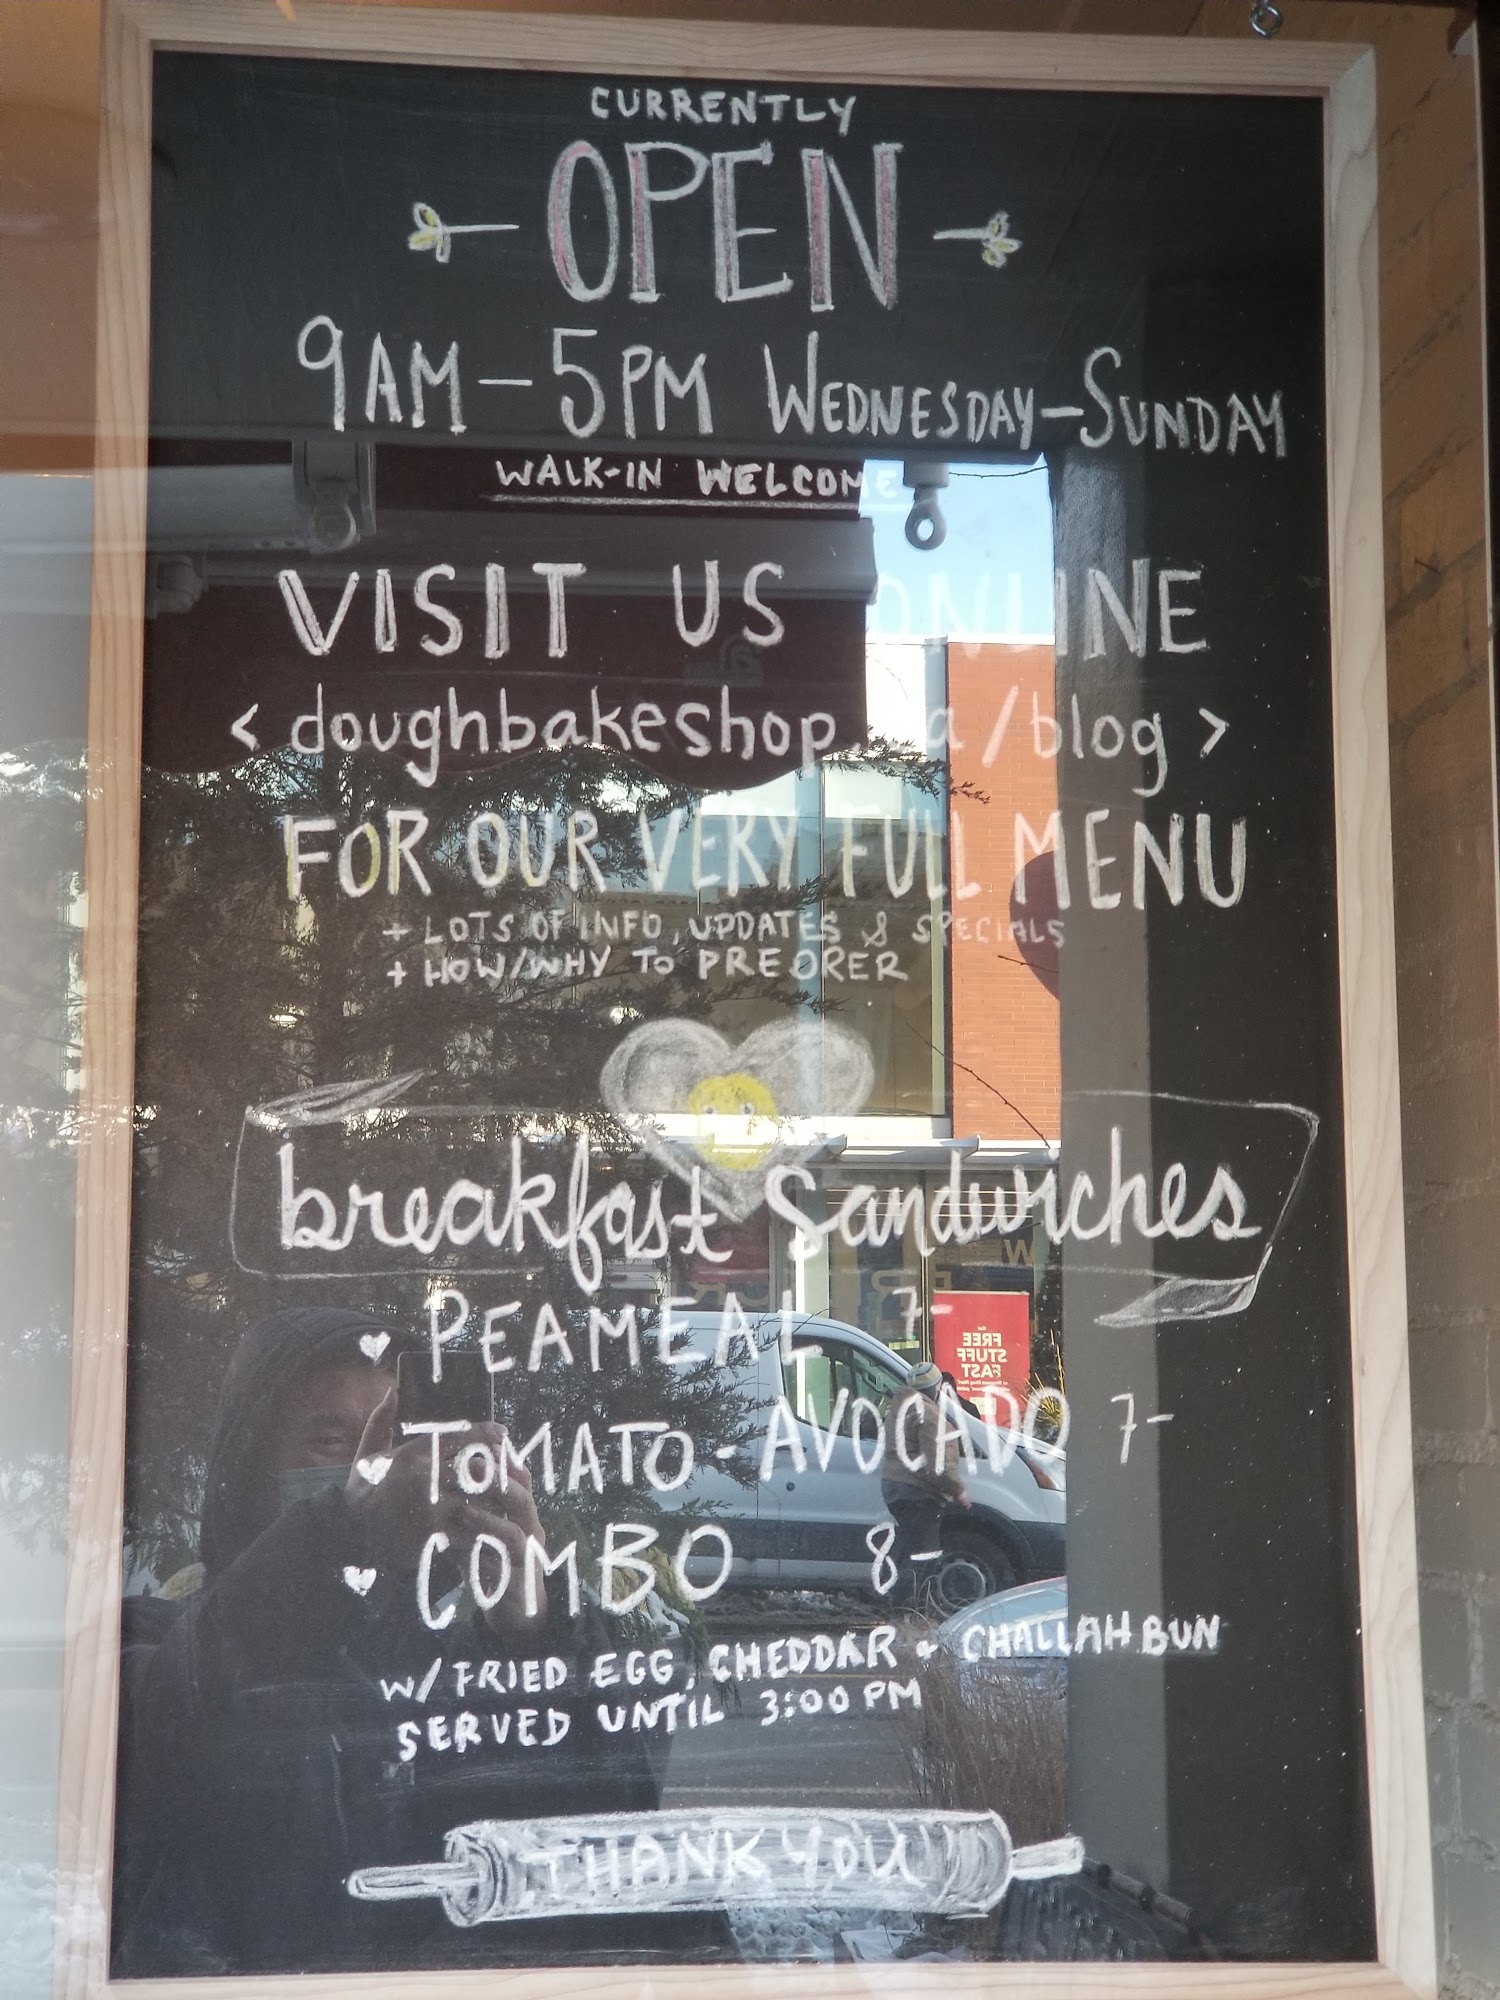 CURRENTLY
OPEN
9AM-5PM WEDNESDAY-SUNDAY
WALK-IN WELCOME
VISIT US ONLINE
< doughbakeshop.ca/blog >
FOR OUR VERY FULL MENU
+ LOTS OF INFO, UPDATES & SPECIALS
+ HOW/WHY TO PREORER
breakfast Sandwiches
PEAMEAL 7-
TOMATO-AVOCADO 7-
COMBO 8-
W/ FRIED EGG, CHEDDAR + CHALLAH BUN
SERVED UNTIL 3:00 PM
THANK YOU
FREE
STUFF
FAST